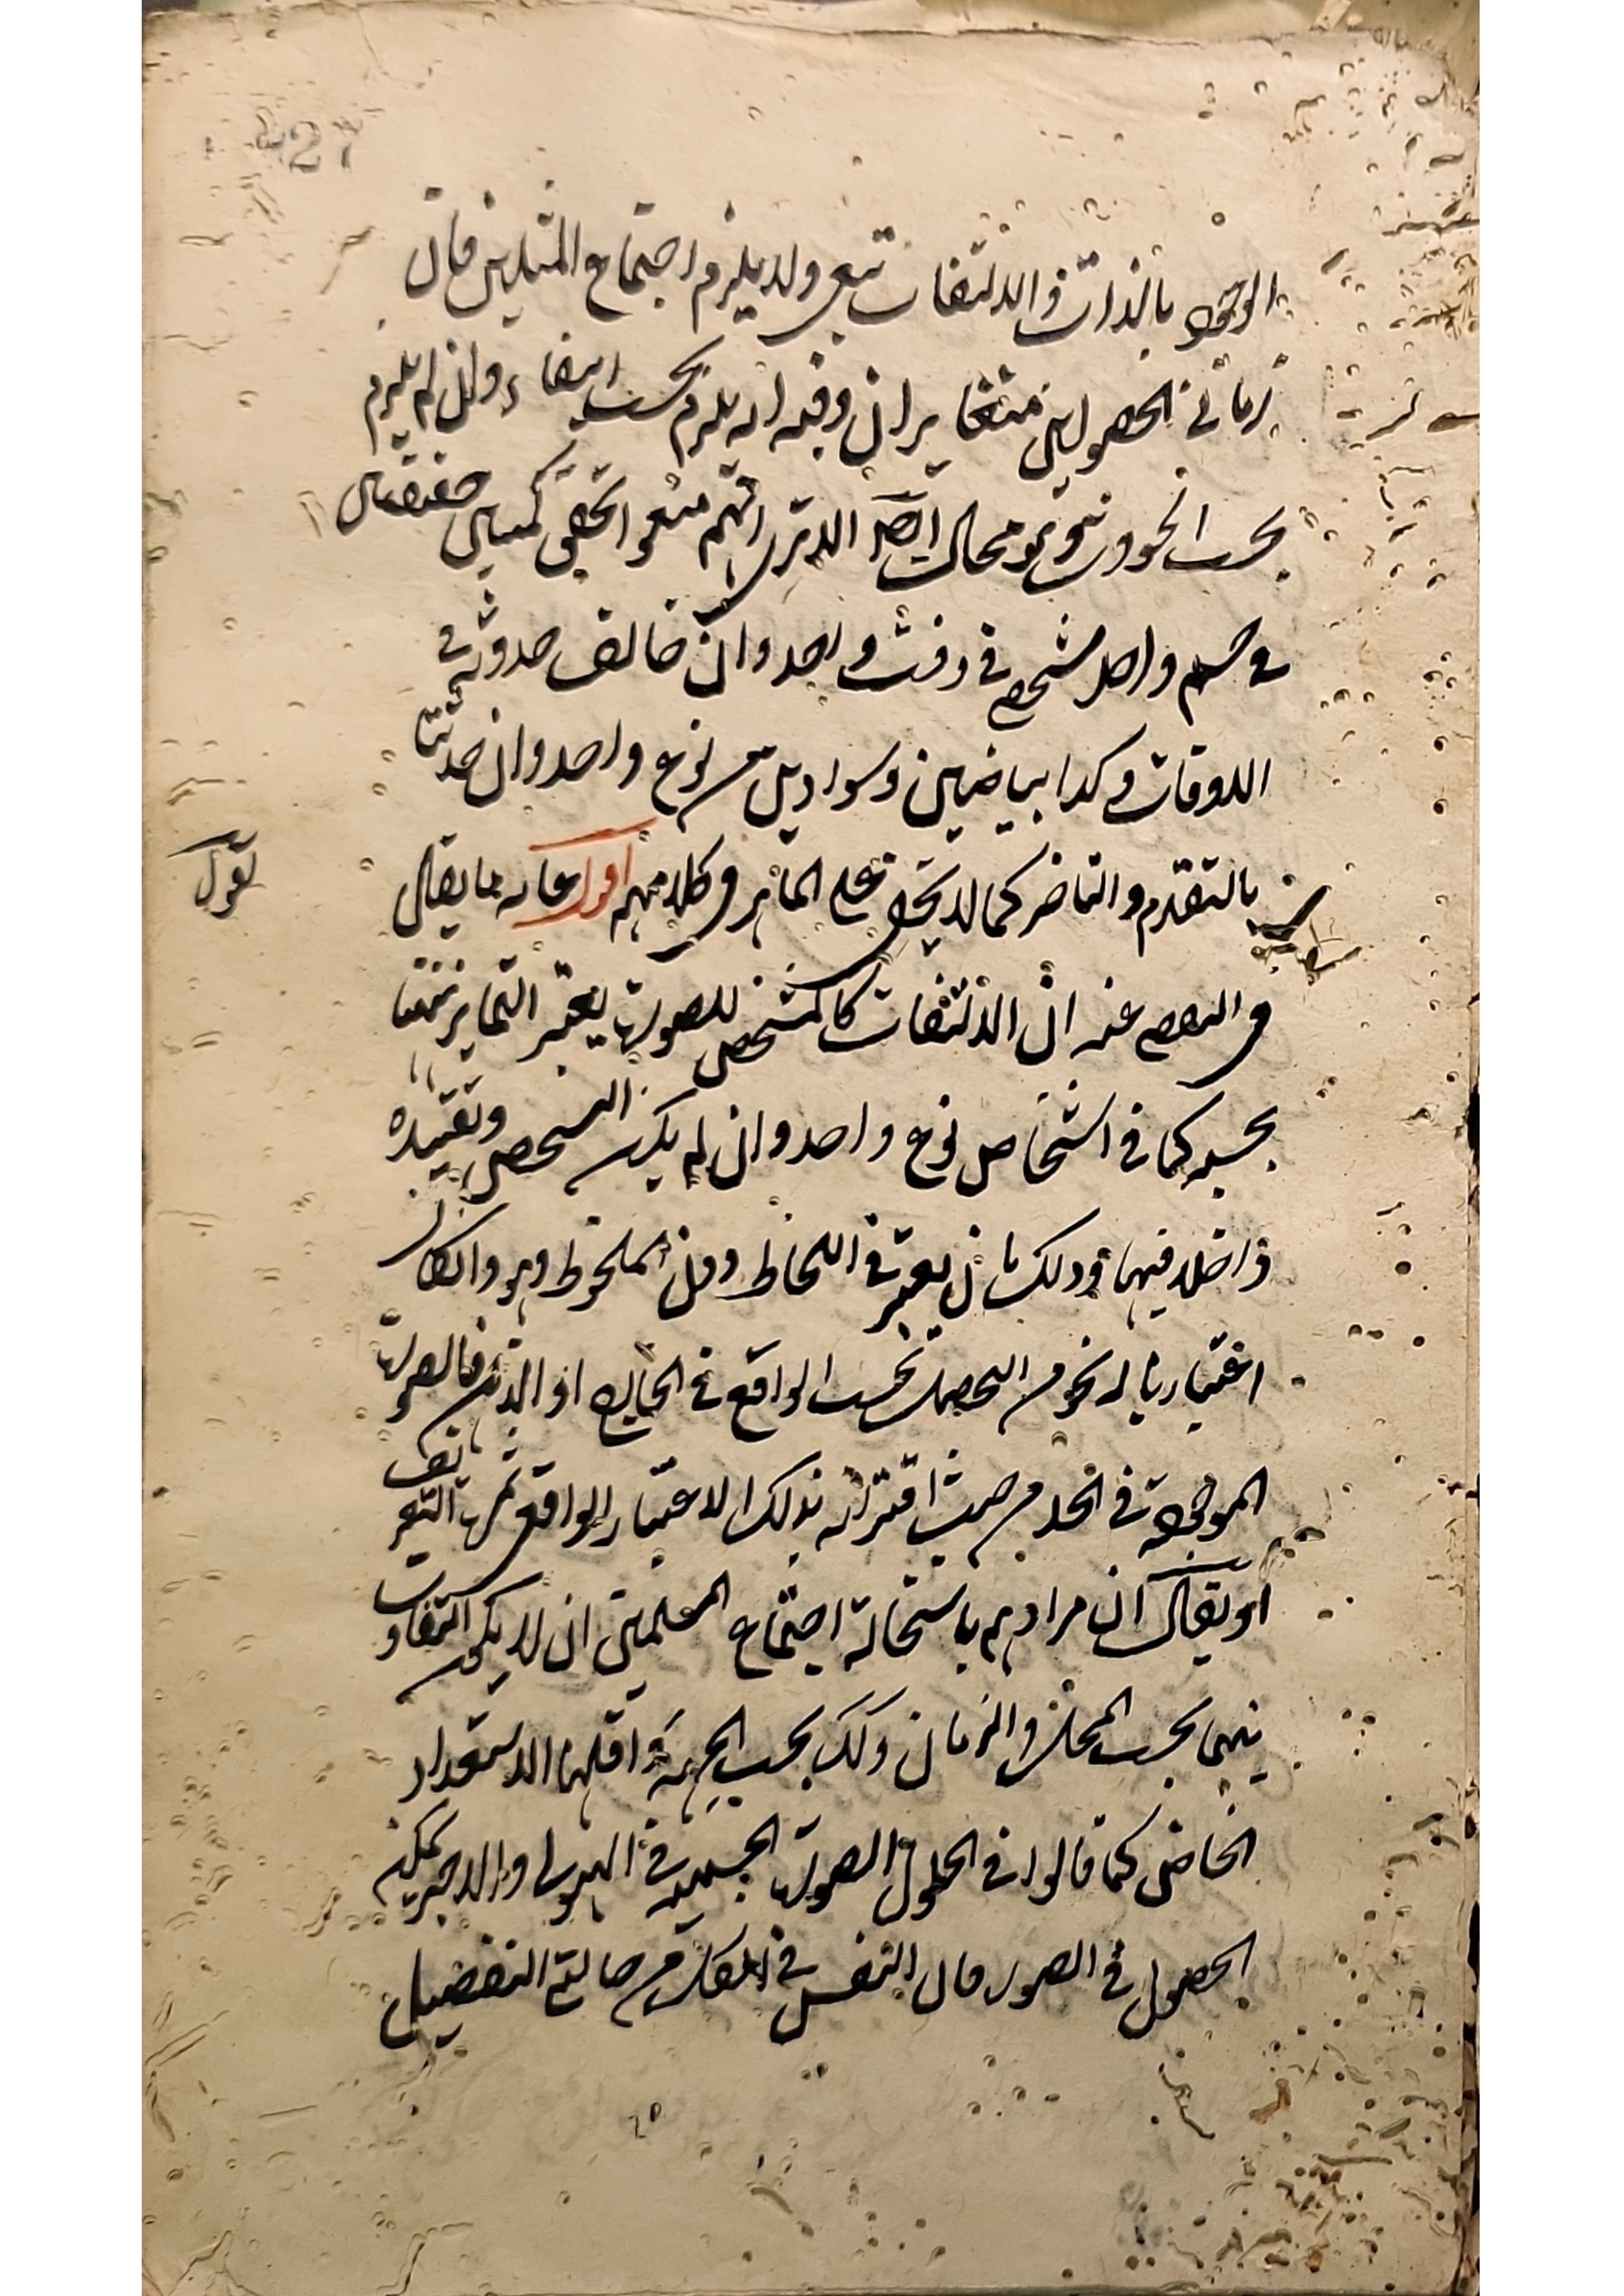 الوجود بالذات والالتفات تبعي ولا يلزم اجتماع المثلين فان
زماني الحصولين متغايران وفيه انه يلزم بحسب البقاء وان لم يلزم
بحسب الحدوث وهو محال ايضا الا ترى انهم منعوا تحقق كميتين حقيقيتين
في جسم واحد شخصي في وقت واحد وان خالف حدوثه في
الاوقات وكذا بياضين وسوادين من نوع واحد وان حدثتا
بالتقدم والتاخر كما لا يخفى على الماهر في كلامهم اقول غاية ما يقال
في التفصي عنه ان الالتفات كالمشخص للصورة يعتبر التمايز بينهما
بحسبه كما في اشخاص نوع واحد وان لم يكن التشخص وتقييده
داخلا فيها وذلك بان يعتبر في اللحاظ دون الملحوظ وهو وان كان
اعتباريا له نحو من التحصل بحسب الواقع في الخارج او الذهن فالصورة
الموجودة في الحد من حيث اقترانه بذلك الاعتبار الواقعي
او يقال ان مرادهم باستحالة اجتماع المثلين ان لا يكون التفاوت
بينهما بحسب المحل والزمان وكذلك بحسب الجهة واقلها الاستعداد
الخاص كما قالوا في الحلول الصورة الجسمية في الهيولى والا لم يمكن
الحصول في الصور فان النفس في من حالتي التفصيل
نقول